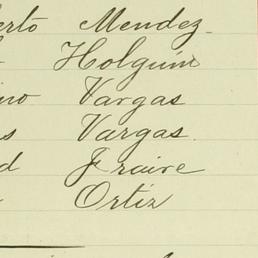 erto Mendez.
Holguin
ino Vargas
s Vargas.
d Fraire
Ortiz